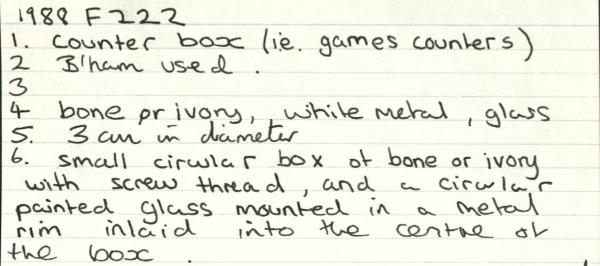 1988 F222
1. Counter box (i.e. games counters)
2 B'ham used.
3
4 bone or ivory, white metal, glass
5. 3 cm in diameter
6. small circular box of bone or ivory
with screw thread, and a circular
painted glass mounted in a metal
rim inlaid into the centre of
the box.